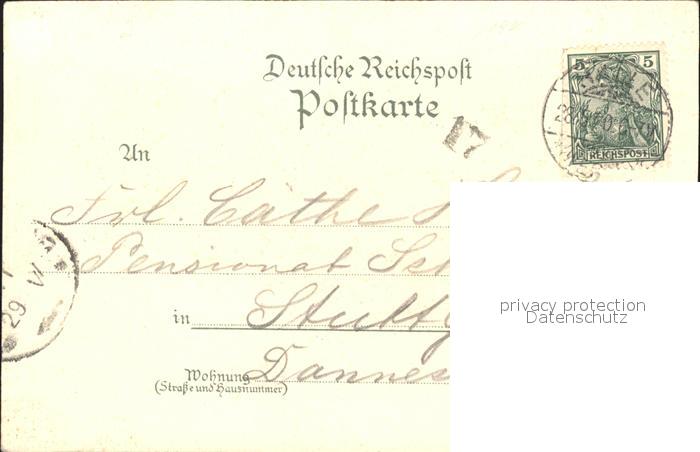 Deutsche Reichspost
Postkarte
5 5
REICHSPOST
17
An
Frl. Cäthe
Pensionat
in Stuttg
Wohnung Dannes
(Straße und Hausnummer)
29 VI
privacy protection
Datenschutz